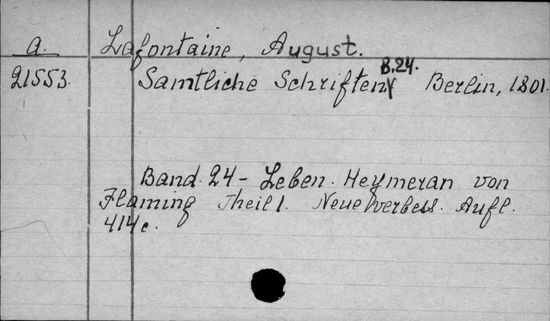 a. Lafontaine, August.
21553. Samtliche Schriften B.24. Berlin, 1801.
Band. 24 - Leben. Heymeran von
Flaming Theil 1. Neue verbess. Aufl.
414 c.